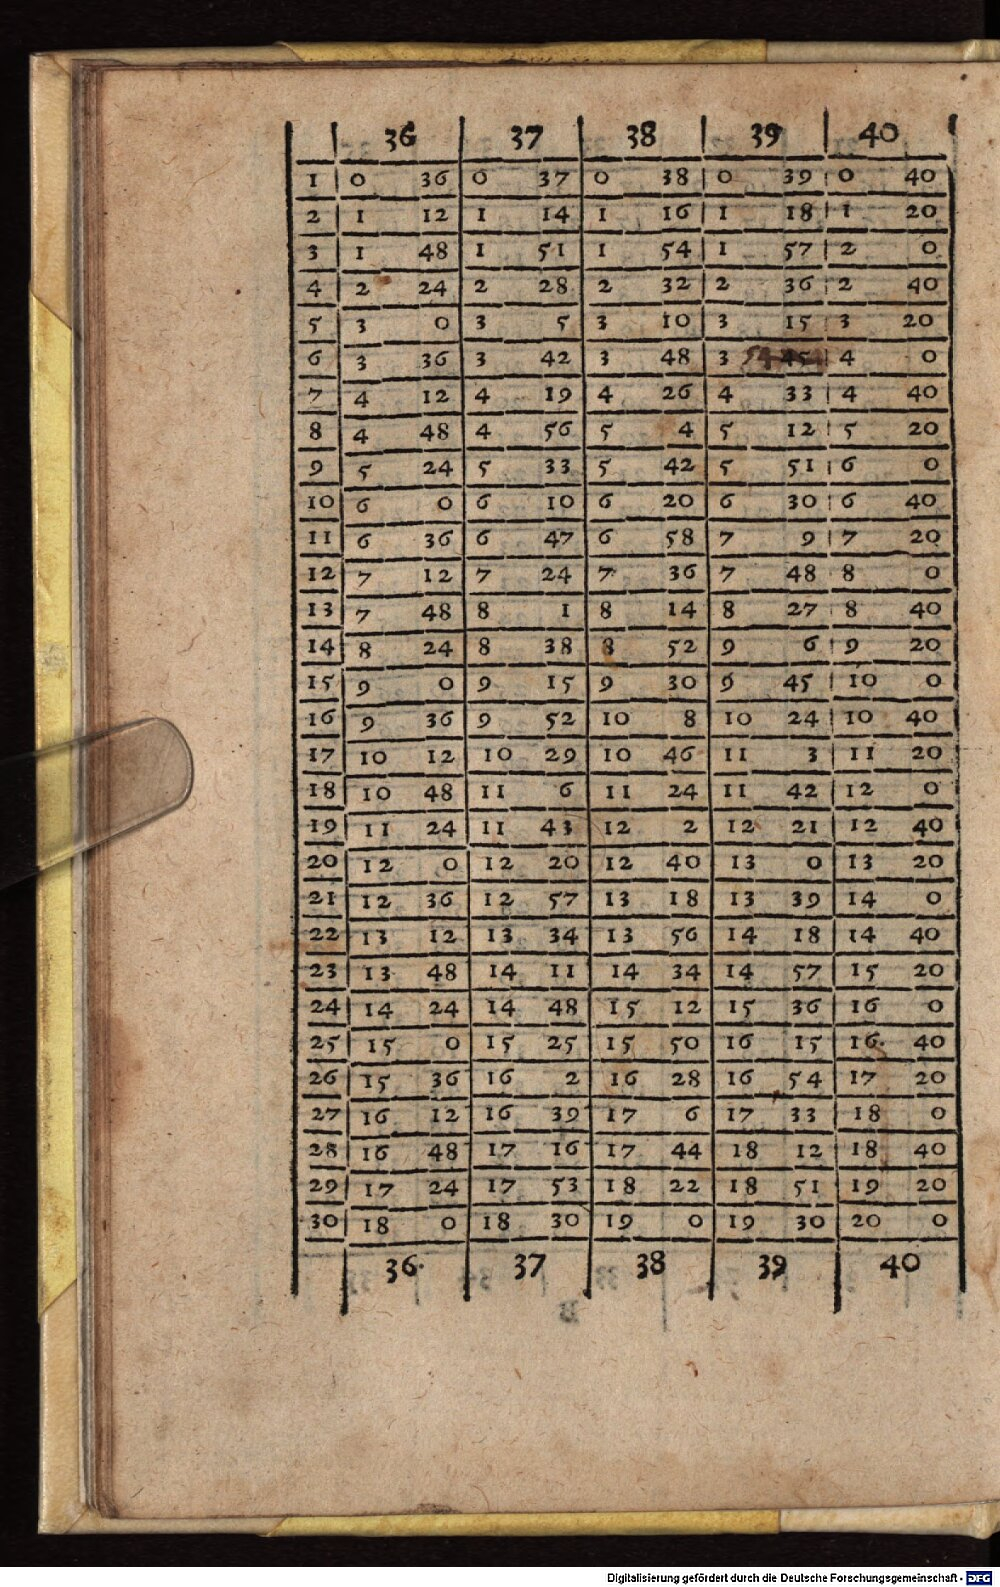 36 37 38 39 40
1 0 36 0 37 0 38 0 39 0 40
2 1 12 1 14 1 16 1 18 1 20
3 1 48 1 51 1 54 1 57 2 0
4 2 24 2 28 2 32 2 36 2 40
5 3 0 3 5 3 10 3 15 3 20
6 3 36 3 42 3 48 3 54 45 4 0
7 4 12 4 19 4 26 4 33 4 40
8 4 48 4 56 5 4 5 12 5 20
9 5 24 5 33 5 42 5 51 6 0
10 6 0 6 10 6 20 6 30 6 40
11 6 36 6 47 6 58 7 9 7 20
12 7 12 7 24 7 36 7 48 8 0
13 7 48 8 1 8 14 8 27 8 40
14 8 24 8 38 8 52 9 6 9 20
15 9 0 9 15 9 30 9 45 10 0
16 9 36 9 52 10 8 10 24 10 40
17 10 12 10 29 10 46 11 3 11 20
18 10 48 11 6 11 24 11 42 12 0
19 11 24 11 43 12 2 12 21 12 40
20 12 0 12 20 12 40 13 0 13 20
21 12 36 12 57 13 18 13 39 14 0
22 13 12 13 34 13 56 14 18 14 40
23 13 48 14 11 14 34 14 57 15 20
24 14 24 14 48 15 12 15 36 16 0
25 15 0 15 25 15 50 16 15 16 40
26 15 36 16 2 16 28 16 54 17 20
27 16 12 16 39 17 6 17 33 18 0
28 16 48 17 16 17 44 18 12 18 40
29 17 24 17 53 18 22 18 51 19 20
30 18 0 18 30 19 0 19 30 20 0
36 37 38 39 40
Digitalisierung gefördert durch die Deutsche Forschungsgemeinschaft - DFG